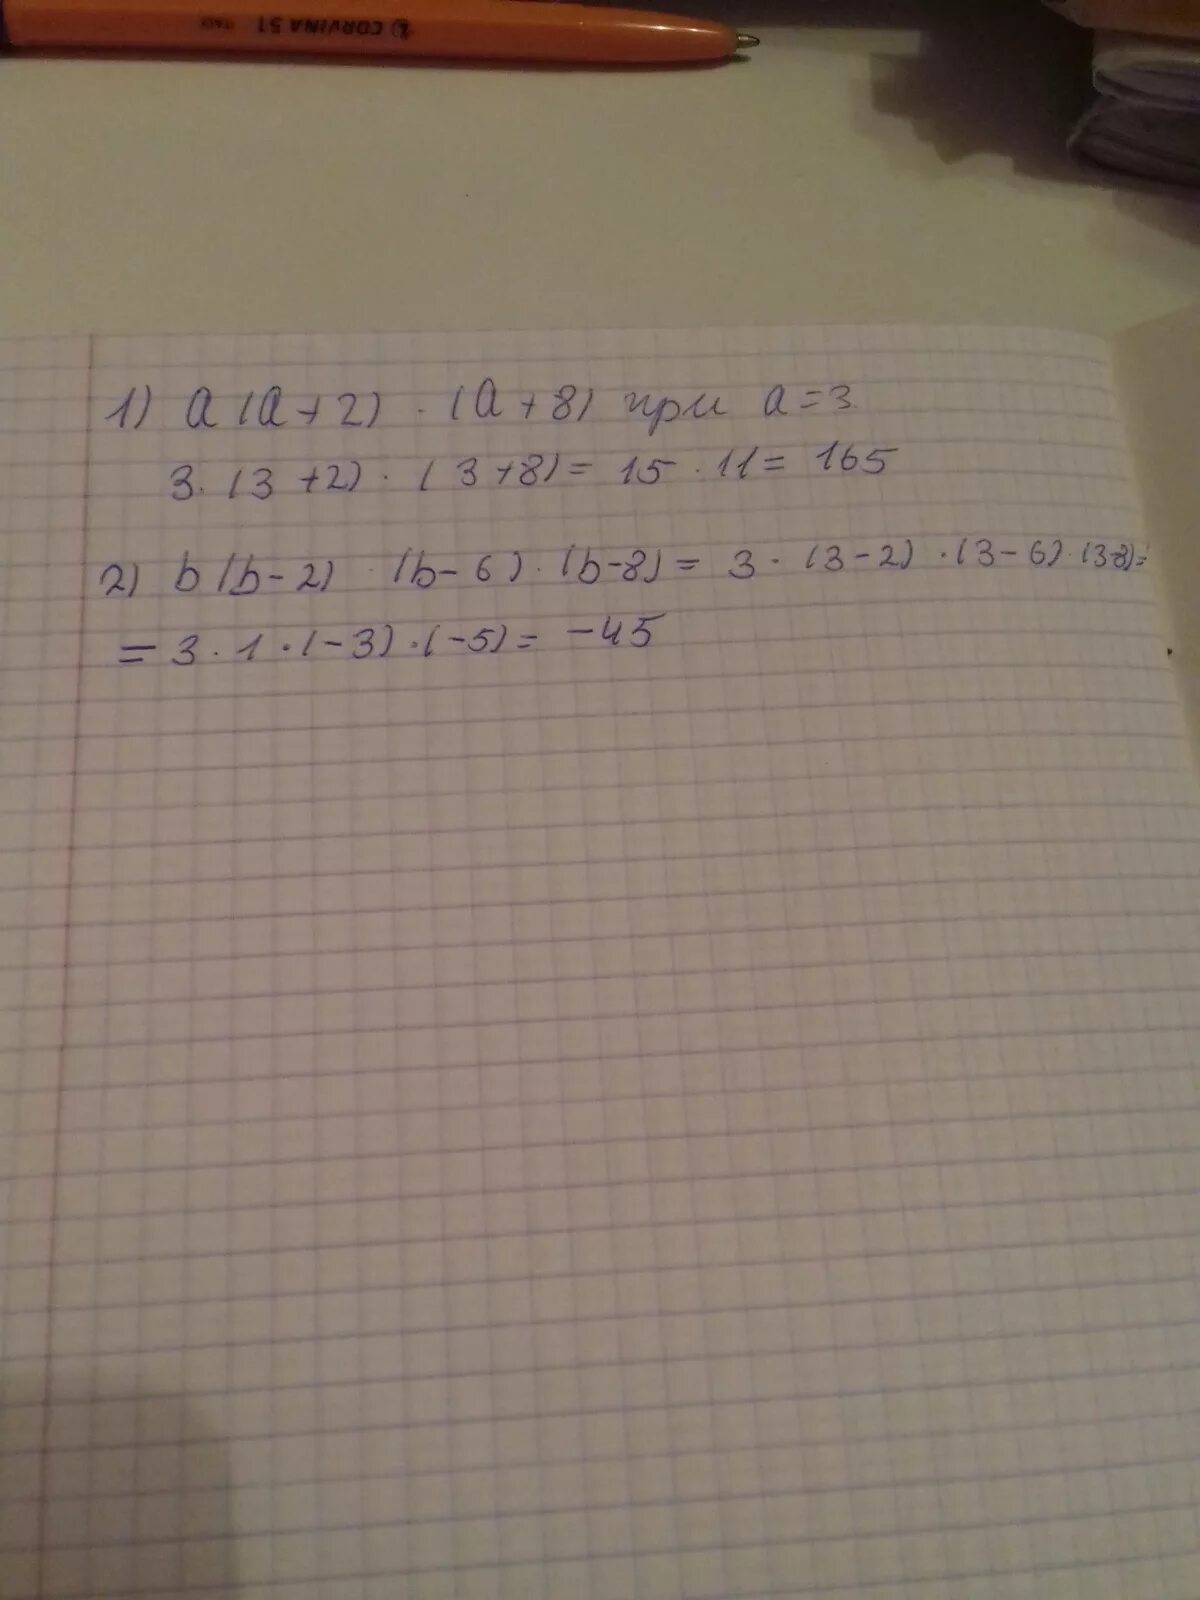 CORVINA 51
1) a (a + 2) · (a + 8) при a = 3.
3. (3 + 2) · (3 + 8) = 15 · 11 = 165
2) b (b - 2) · (b - 6) · (b - 8) = 3 · (3 - 2) · (3 - 6) · (3-8) =
= 3 · 1 · (-3) · (-5) = -45